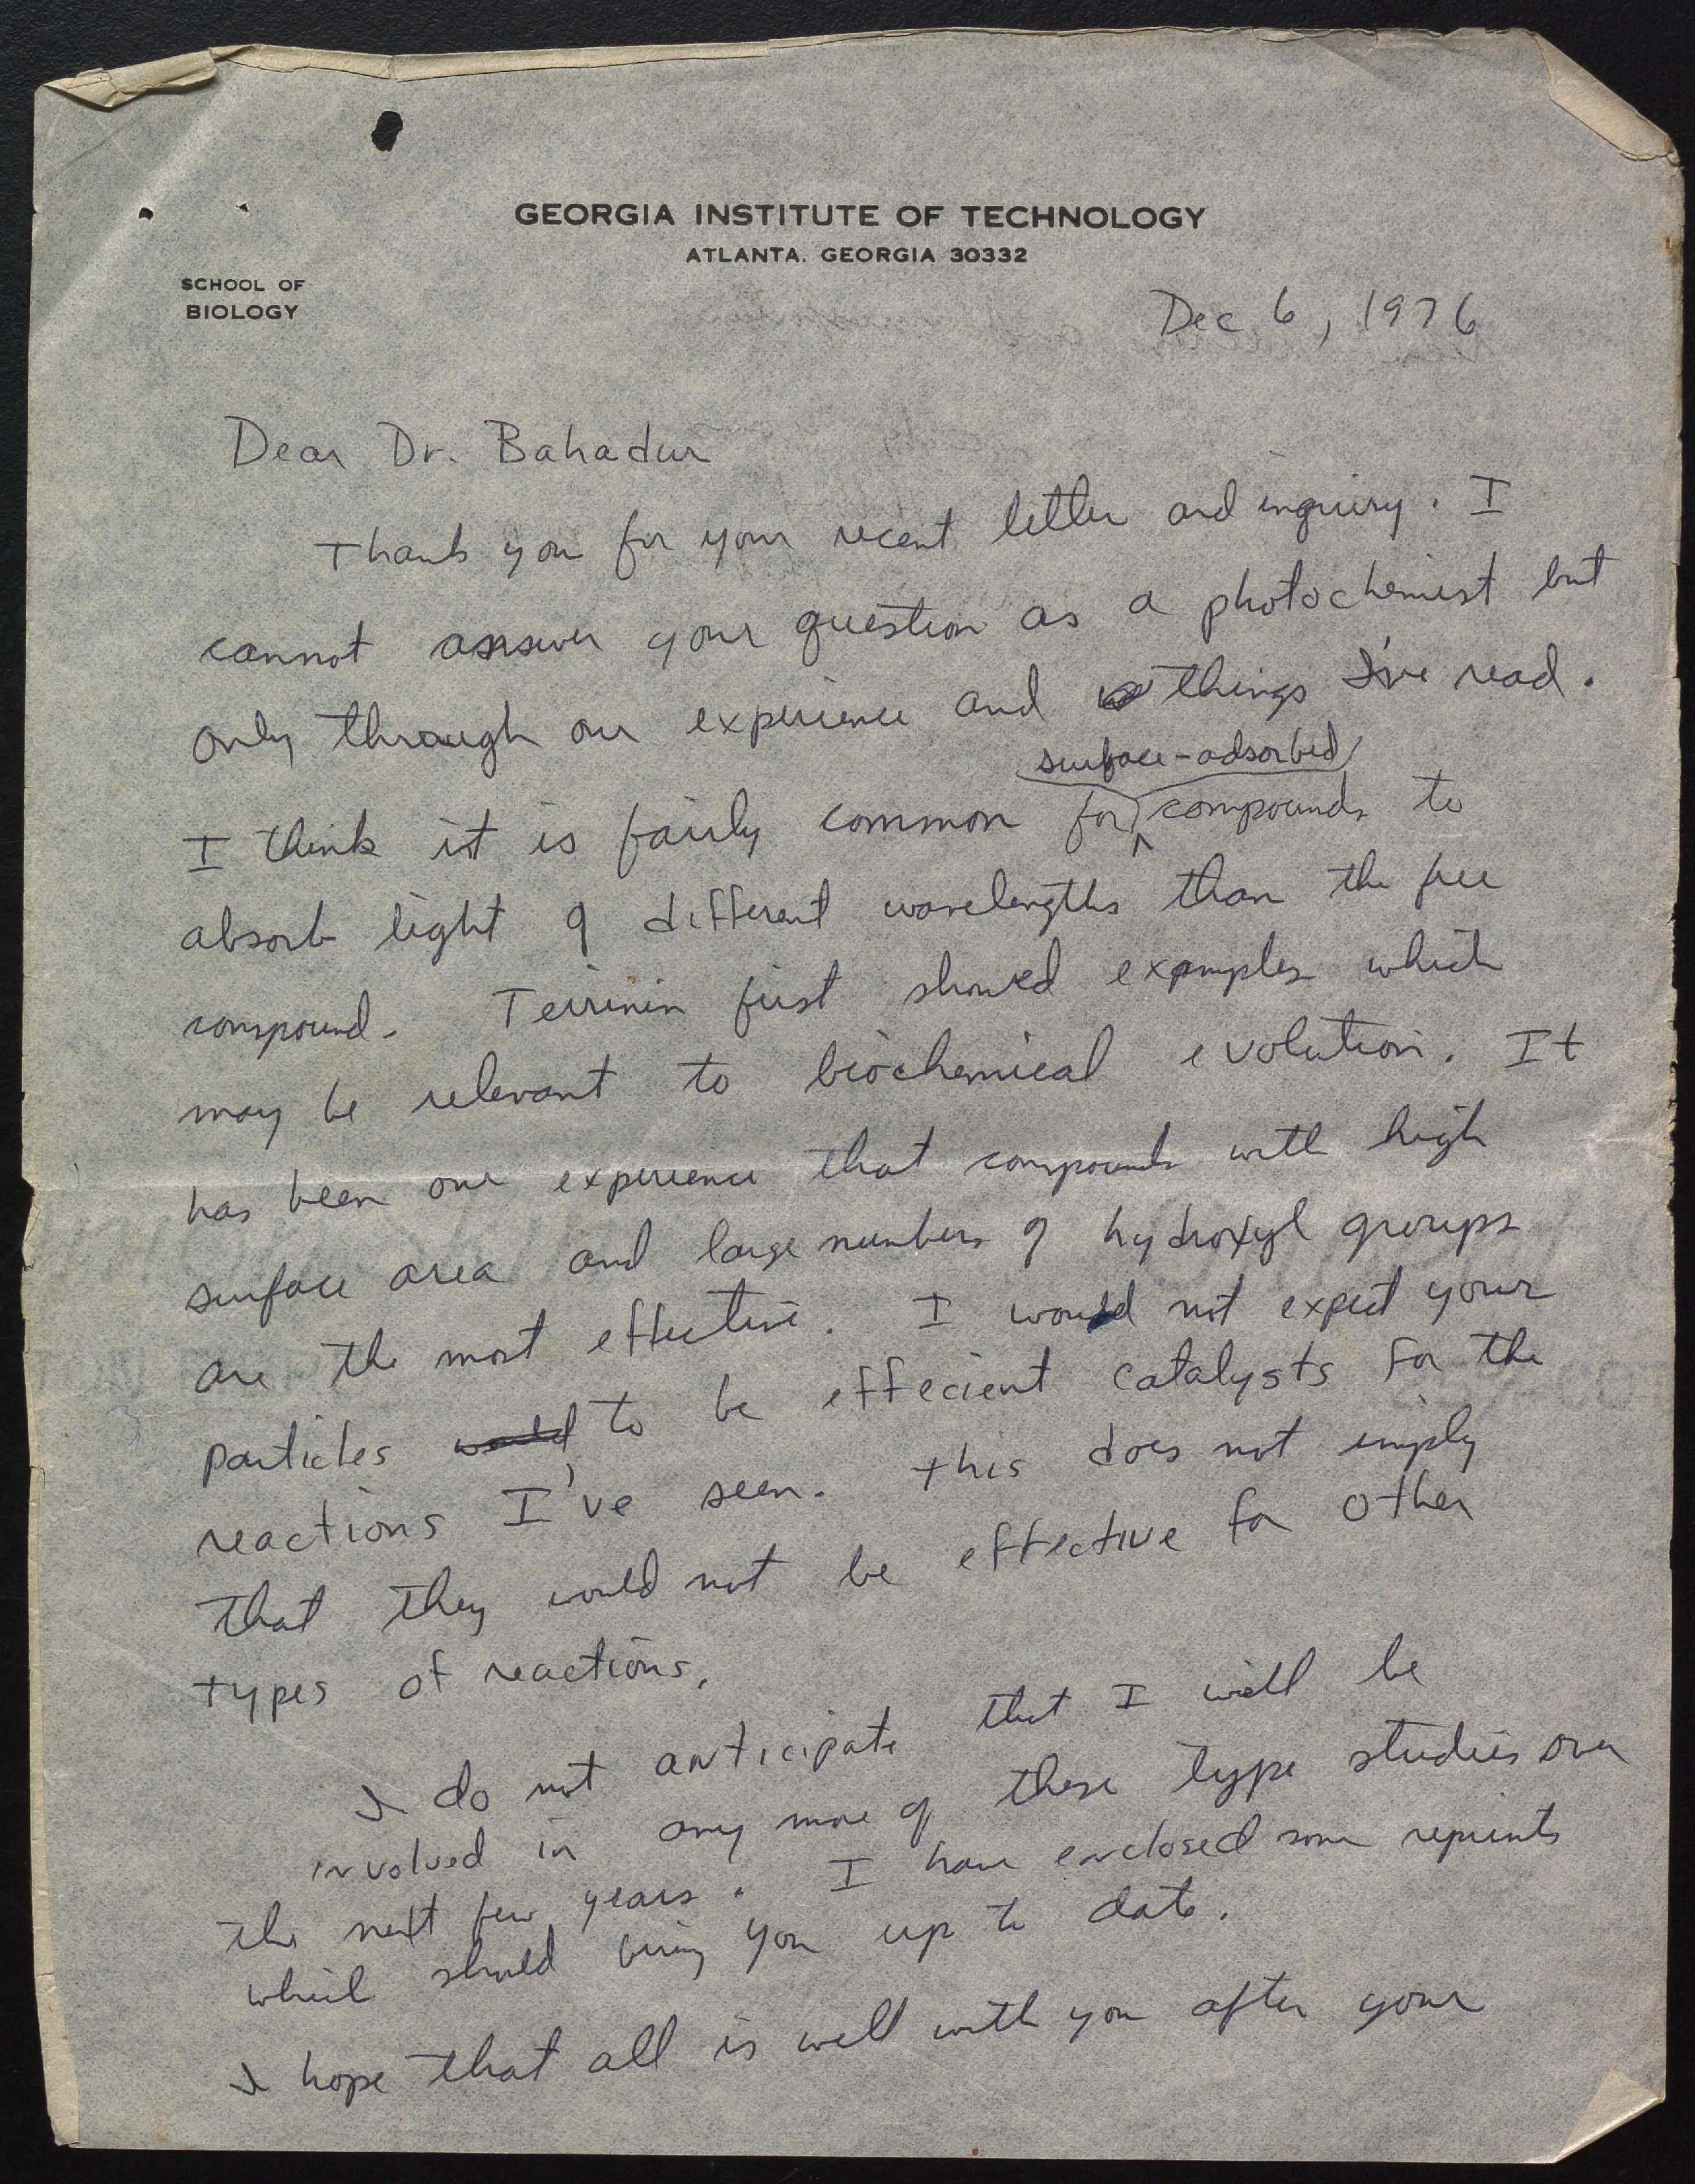 GEORGIA INSTITUTE OF TECHNOLOGY
ATLANTA, GEORGIA 30332
SCHOOL OF
BIOLOGY
Dec 6, 1976
Dear Dr. Bahadur
Thank you for your recent letter and inquiry. I
cannot answer your question as a photochemist but
only through our experience and things I've read.
surface-adsorbed
I think it is fairly common for compounds to
absorb light of different wavelengths than the free
compound. Terrinin first showed examples which
may be relevant to biochemical evolution. It
has been our experience that compounds with high
surface area and large numbers of hydroxyl groups
are the most effective. I would not expect your
particles would to be effecient catalysts for the
reactions I've seen. This does not imply
that they would not be effective for other
types of reactions.
I do not anticipate that I will be
involved in any more of these type studies over
the next few years. I have enclosed some reprints
which should bring you up to date.
I hope that all is well with you after your